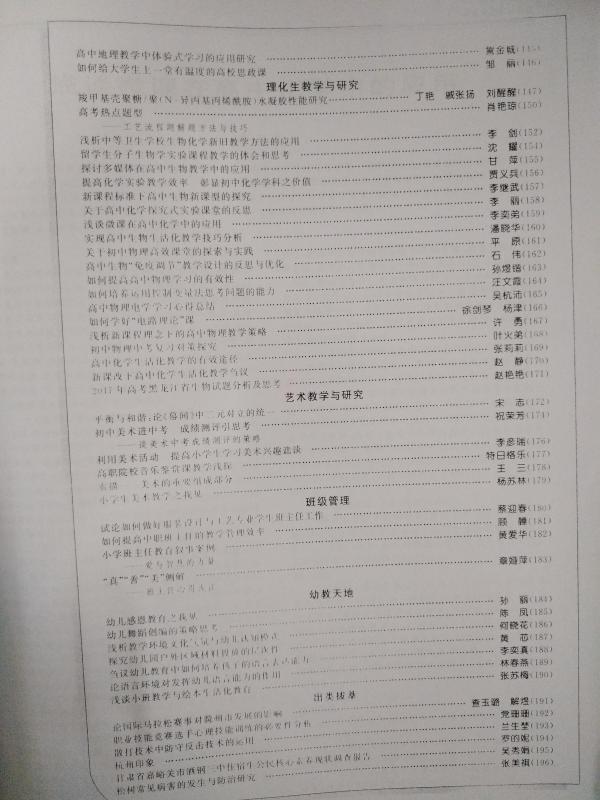 高中地理教学中体验式学习的应用研究
如何给大学生上一堂有温度的高校思政课 邹 丽(146)
理化生教学与研究
羧甲基壳聚糖/聚(N-异丙基丙烯酰胺)水凝胶性能研究 丁艳 戚张扬 刘醒醒(147)
高考热点题型 肖艳琼(150)
——工艺流程题解题方法与技巧
浅析中等卫生学校生物化学新旧教学方法的应用 李 剑(152)
留学生分子生物学实验课程教学的体会和思考 沈 耀(154)
探讨多媒体在高中生物教学中的应用 甘 萍(155)
提高化学实验教学效率 彰显初中化学学科之价值 贾义兵(156)
新课程标准下高中生物新课型的探究 李继武(157)
关于高中化学探究式实验课堂的反思 李 丽(158)
浅谈微课在高中化学中的应用 李奕弟(159)
实现高中生物生活化教学技巧分析 潘晓华(160)
关于初中物理高效课堂的探索与实践 平 原(161)
高中生物“免疫调节”教学设计的反思与优化 石 伟(162)
如何提高高中物理学习的有效性 孙煜锴(163)
如何培养运用控制变量法思考问题的能力 汪文霞(164)
高中物理电学学习心得总结 吴杭沛(165)
如何学好“电路理论”课 徐剑琴 杨津(166)
浅析新课程理念下的高中物理教学策略 许 勇(167)
初中物理中考复习对策探究 叶火弟(168)
高中化学生活化教学的有效途径 张莉莉(169)
新课改下高中化学生活化教学刍议 赵 静(170)
2017年高考黑龙江省生物试题分析及思考 赵艳艳(171)
艺术教学与研究
平衡与和谐:论《幕间》中二元对立的统一 宋 志(172)
初中美术进中考 成绩测评引思考 祝荣芳(174)
——谈美术中考成绩测评的策略
利用美术活动 提高小学生学习美术兴趣途谈 李彦瑞(176)
高职院校音乐鉴赏课教学浅探 特日格乐(177)
素描——美术的重要组成部分 王 三(178)
小学生美术教学之我见 杨苏林(179)
班级管理
试论如何做好服装设计与工艺专业学生班主任工作 蔡迎春(180)
如何提高中职班主任的教学管理效率 顾 (181)
小学班主任教育叙事案例 黄爱华(182)
——爱与智慧的力量
“真”“善”“美”侧解 章娅萍(183)
幼教天地
幼儿感恩教育之我见 孙 丽(184)
幼儿舞蹈创编的策略思考 陈 凤(185)
浅析教学环境文化气氛与幼儿认知模式 何晓花(186)
探究幼儿园户外区域材料投放的层次性 黄 芯(187)
刍议幼儿教育中如何培养孩子的语言表达能力 李奕真(188)
论语言环境对发挥幼儿语言能力的作用 林春燕(189)
浅谈小班教学与绘本生活化教育 张苏梅(190)
出类拔萃
论国际马拉松赛事对滁州市发展的影响 查玉璐 解煜(191)
职业技能竞赛选手心理技能训练的必要性分析 党珊珊(192)
散打技术中防守反击技术的运用 兰生莹(193)
杭州印象 罗的妮(194)
甘肃省嘉峪关市酒钢三中住宿生公民核心素养现状调查报告 吴秀娟(195)
松树常见病害的发生与防治研究 张美祺(196)